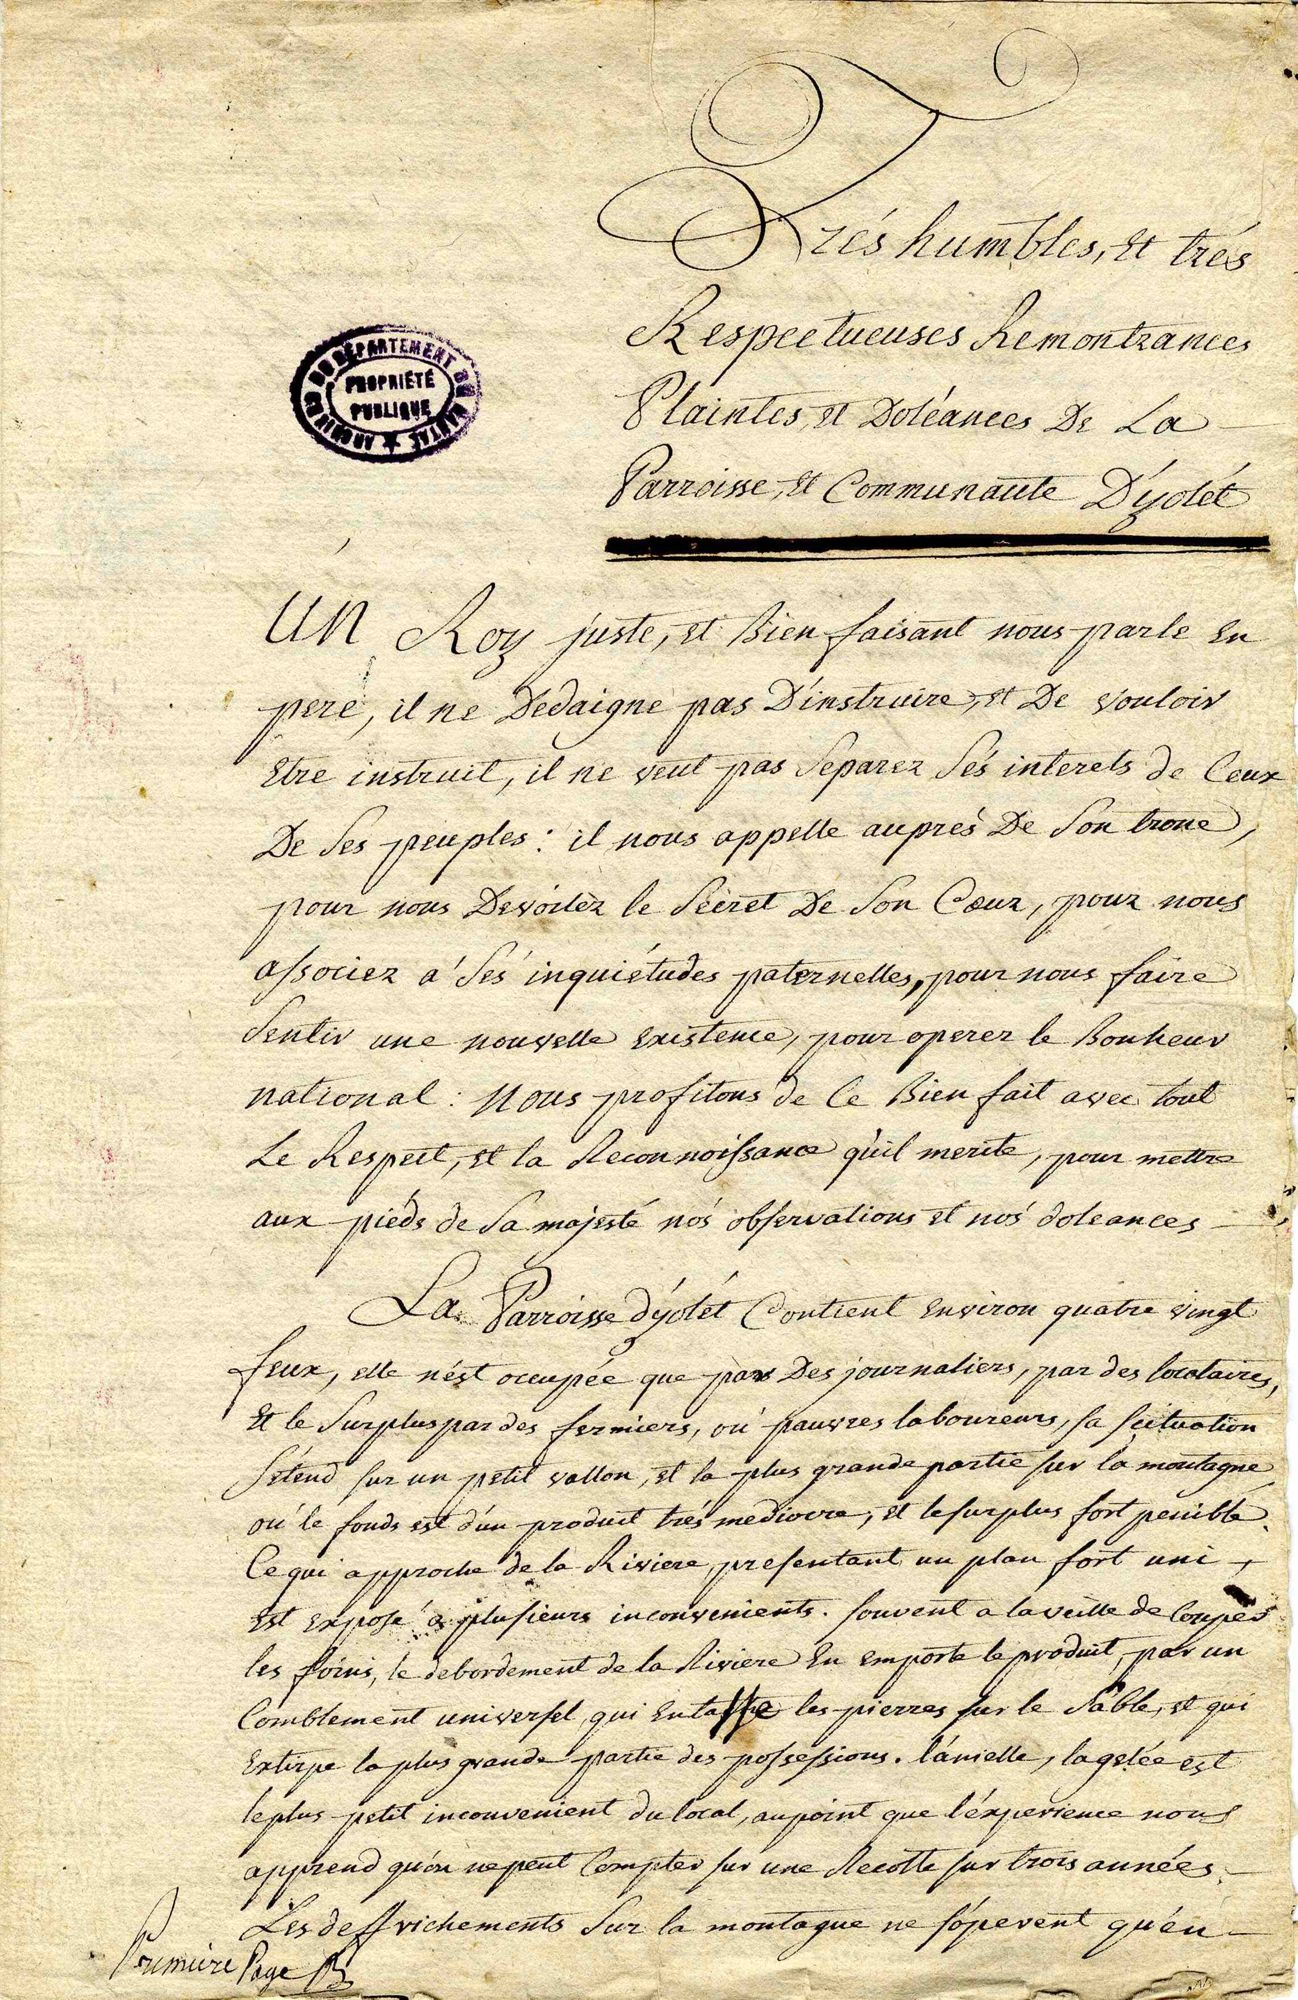 Trés humbles, et trés
Respectueuses Remontrances
Plaintes, et Doléances De La
Parroisse, et Communauté D'yolét
ARCHIVES DU DÉPARTEMENT DU CANTAL
PROPRIÉTÉ
PUBLIQUE
UN Roy juste, et Bien faisant nous parle en
pere, il ne Dedaigne pas D'instruire, et De vouloir
Etre instruit, il ne veut pas Separer Sés interets de Ceux
De Ses peuples: il nous appelle auprés De Son trone,
pour nous Devoiler le Sécret De Son Cœur, pour nous
associer a' Sés inquiétudes paternelles, pour nous faire
Sentir une nouvelle existence, pour operer le Bonheur
national: Nous profitons de Ce Bien fait avec tout
Le Respect, et la Reconnoissance qu'il merite, pour mettre
aux piéds de Sa majesté nós observations et nós doleances
La Parroisse d'yolét Contient environ quatre vingt
feux, elle n'ést occupée que par Des journaliers, par des locataires,
Et le Surplus par des fermiers, ou pauvres laboureurs, sa scituation
S'étend sur un petit vallon, et la plus grande partie sur la montagne,
ou' le fonds est d'un produit trés mediocre, et le surplus fort penible.
Ce qui approche de la Riviere, presentant un plan fort uni,
est exposé a plusieurs inconvenients. souvent a la veille de Couper
les foins, le debordement de la Riviere en emporte le produit, par un
Comblement universel, qui entasse les pierres sur le Sable, et qui
extirpe la plus grande partie des possessions. l'anielle, la gelée est
le plus petit inconvenient du local, au point que l'éxperience nous
apprend qu'on ne peut Compter sur une Recolte sur trois années.
Les deffrichements Sur la montagne ne s'óperent qu'en
Premiere Page